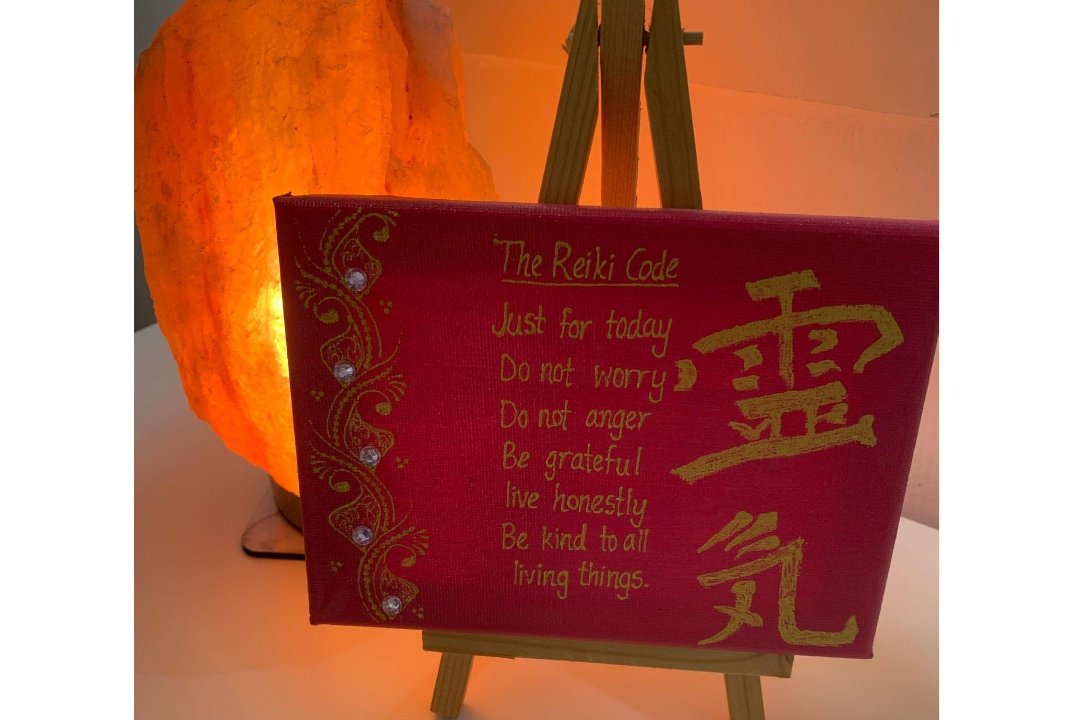 The Reiki Code
Just for today
Do not worry
Do not anger
Be grateful
live honestly
Be kind to all
living things.
霊
気